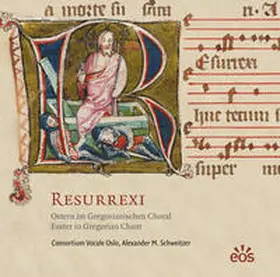 a morte su scita
Esurrexi
huc tecum s
super me
RESURREXI
Ostern im Gregorianischen Choral
Easter in Gregorian Chant
Consortium Vocale Oslo, Alexander M. Schweitzer
eos